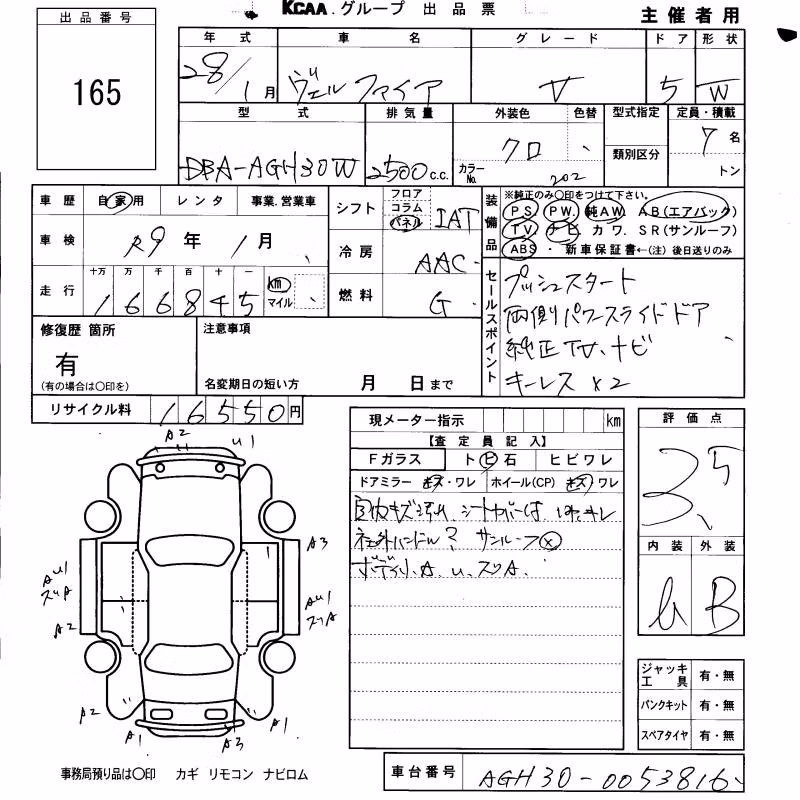 KCAA.グループ 出品票 主催者用
出品番号
165
年式 車名 グレード ドア 形状
28/1月 ヴェルファイア V 5 W
型式 排気量 外装色 色替 型式指定 定員・積載
DBA-AGH30W 2500c.c. クロ カラーNo. 202 類別区分 7名
トン
車歴 自家用 レンタ 事業.営業車
車検 R9年1月
走行 十万 万 千 百 十 一
166845 km マイル
シフト フロア コラム パネル IAT
冷房 AAC
燃料 G
装備品 ※純正のみ〇印をつけて下さい。
PS. PW. 純AW. AB(エアバック)
TV. ナビ カワ. SR(サンルーフ)
ABS・新車保証書←(注)後日送りのみ
セールスポイント
プッシュスタート
両側パワースライドドア
純正TV.ナビ
キーレス×2
修復歴 箇所
有
(有の場合は〇印を)
注意事項
名変期日の短い方 月 日まで
リサイクル料 16550円
現メーター指示 km
【査定員記入】
Fガラス ト ビ 石 ヒビワレ
ドアミラー キズ・ワレ ホイール(CP) キズ ワレ
室内キズ汚れ シートカバー
社外ハンドル? サンルーフ×
ボディ A. U. スリA.
評価点
3.5
内装 外装
B
ジャッキ工具 有・無
パンクキット 有・無
スペアタイヤ 有・無
A2 U1
A3
AU1
スリA
A2
AU1
スリA
A2 A1
A1 A3
事務局預り品は〇印 カギ リモコン ナビロム
車台番号 AGH30-0053816